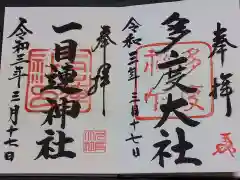 奉拝
多度大社
令和三年三月十七日
奉拝
一目連神社
令和三年三月十七日